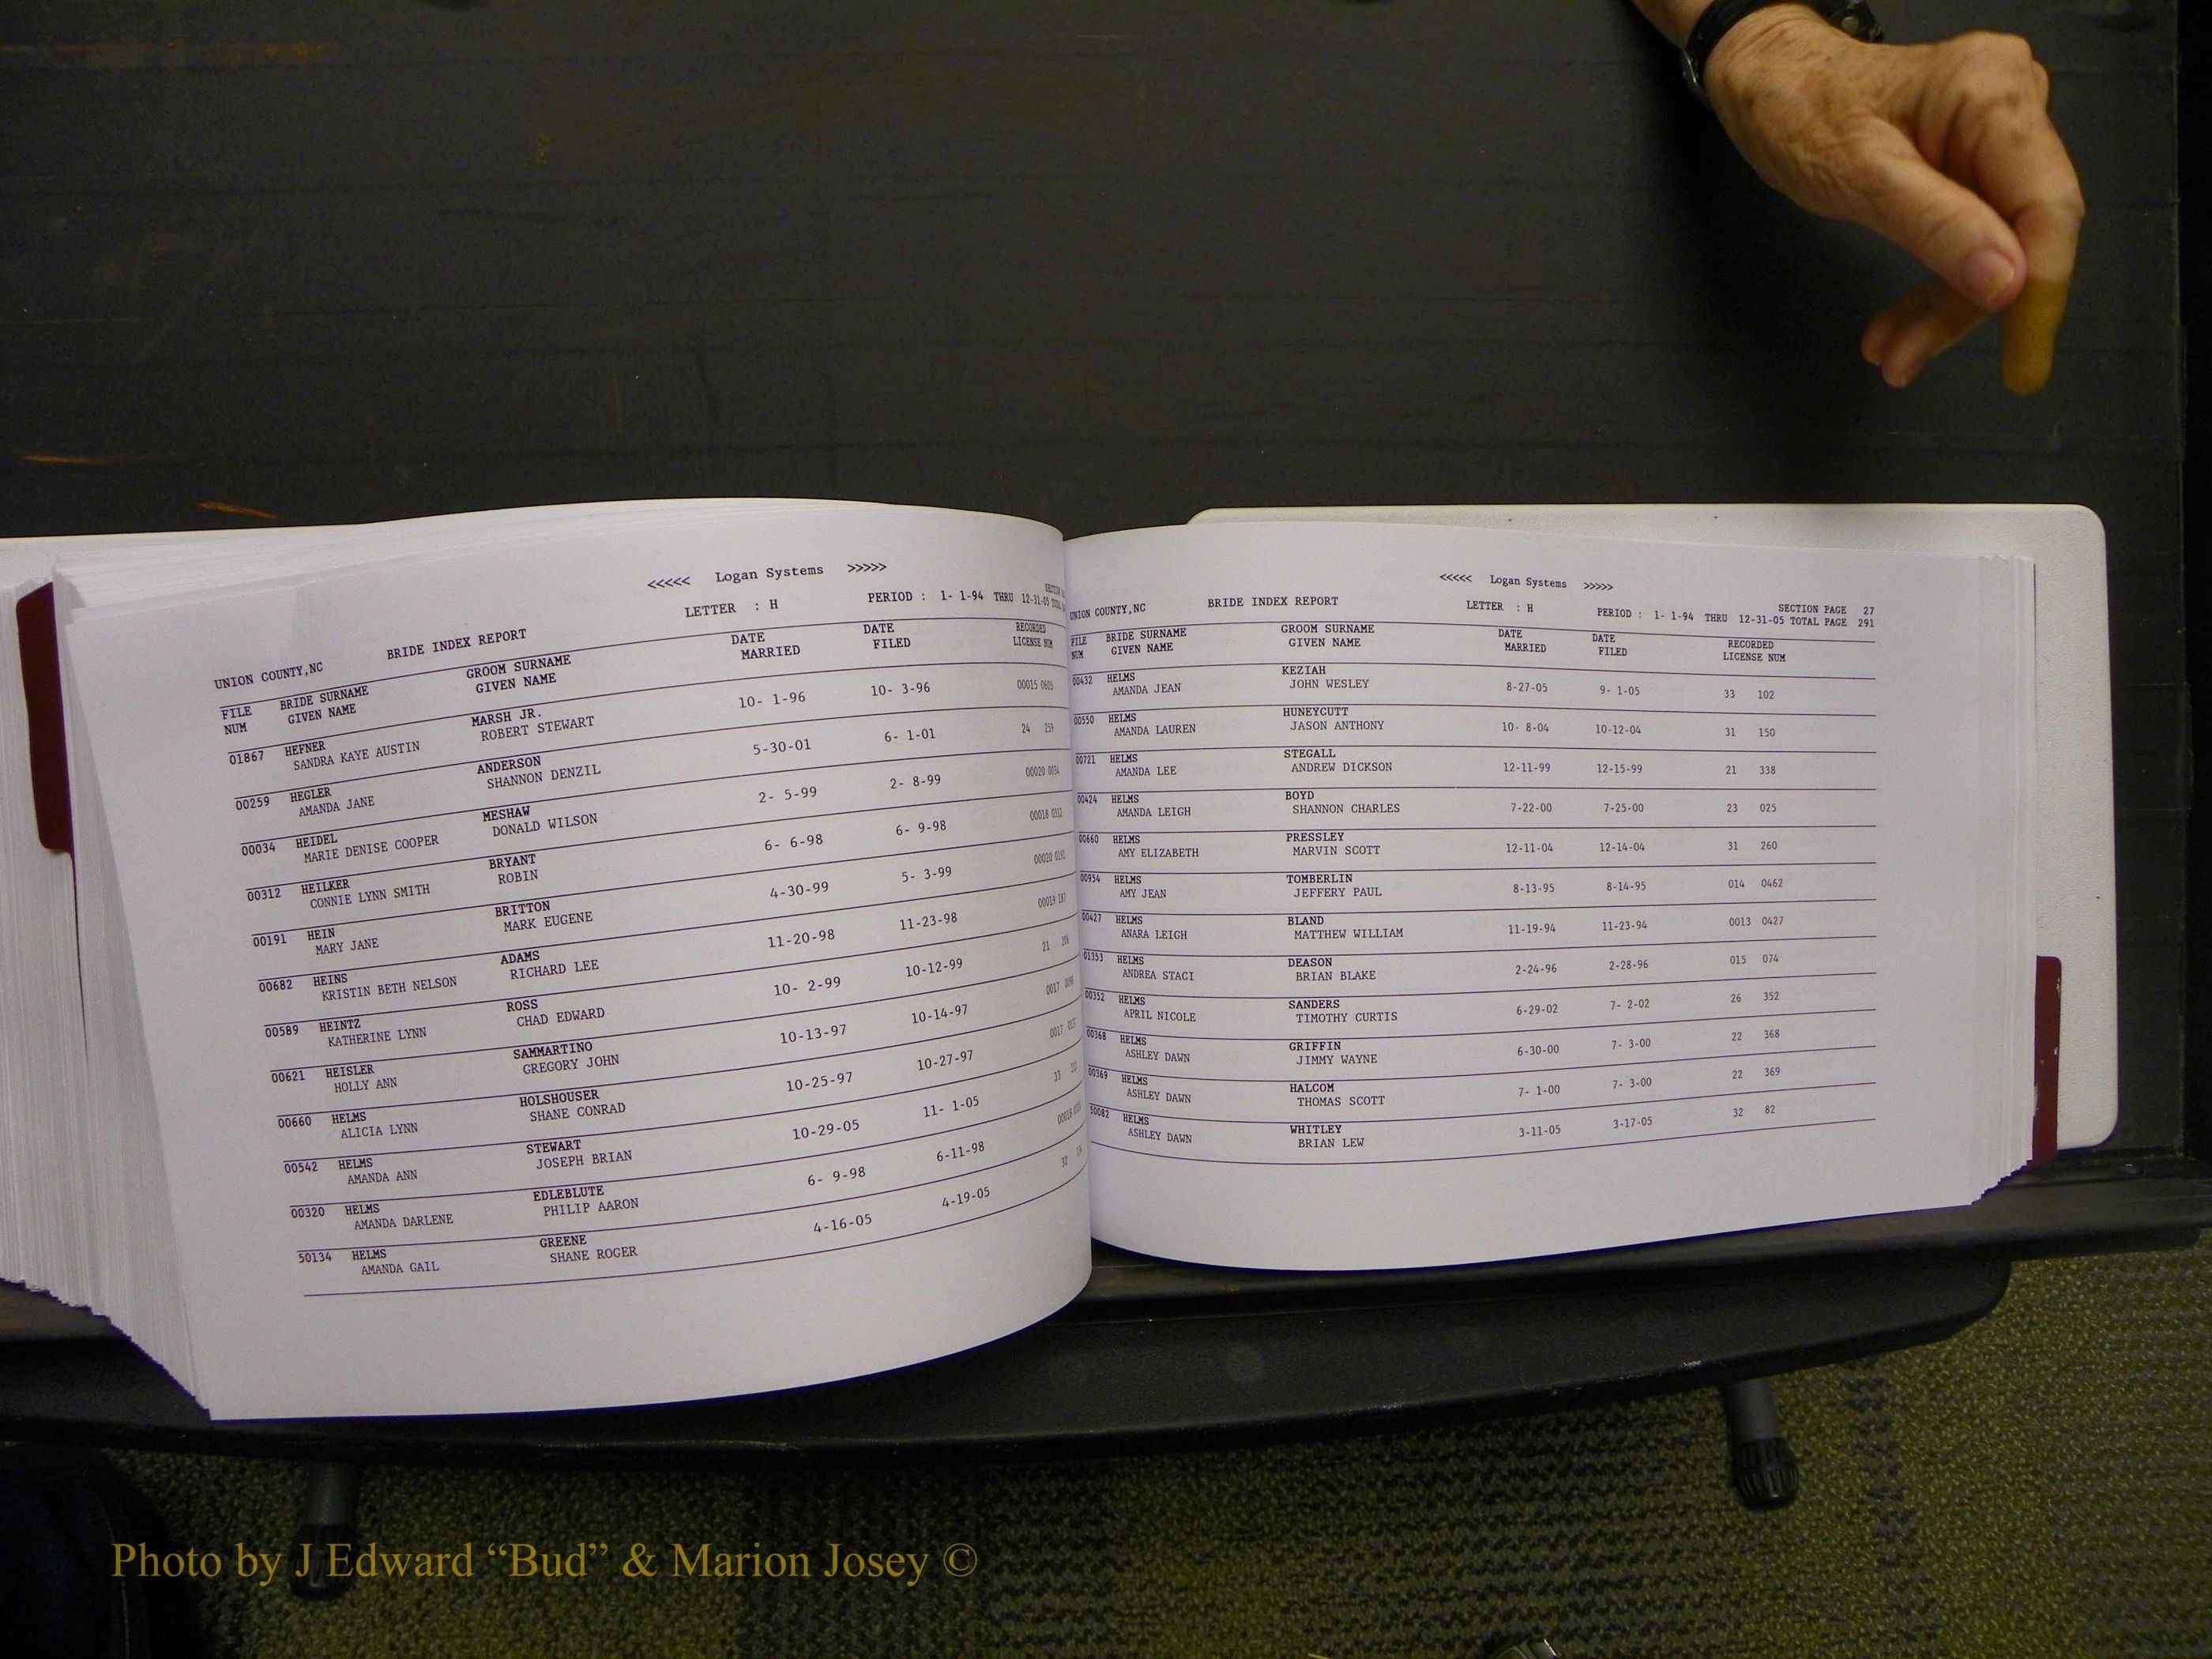 <<<<< Logan Systems >>>>>
UNION COUNTY,NC BRIDE INDEX REPORT LETTER : H PERIOD : 1- 1-94 THRU 12-31-05
FILE BRIDE SURNAME GROOM SURNAME DATE DATE RECORDED
NUM GIVEN NAME GIVEN NAME MARRIED FILED LICENSE NUM
01867 HEFNER MARSH JR. 10- 1-96 10- 3-96 00015 0605
SANDRA KAYE AUSTIN ROBERT STEWART
00259 HEGLER ANDERSON 5-30-01 6- 1-01 24 259
AMANDA JANE SHANNON DENZIL
00034 HEIDEL MESHAW 2- 5-99 2- 8-99 00020 0034
MARIE DENISE COOPER DONALD WILSON
00312 HEILKER BRYANT 6- 6-98 6- 9-98 00018 0312
CONNIE LYNN SMITH ROBIN
00191 HEIN BRITTON 4-30-99 5- 3-99 00020
MARY JANE MARK EUGENE
00682 HEINS ADAMS 11-20-98 11-23-98 00019 187
KRISTIN BETH NELSON RICHARD LEE
00589 HEINTZ ROSS 10- 2-99 10-12-99 21
KATHERINE LYNN CHAD EDWARD
00621 HEISLER SAMMARTINO 10-13-97 10-14-97 0017
HOLLY ANN GREGORY JOHN
00660 HELMS HOLSHOUSER 10-25-97 10-27-97 0017
ALICIA LYNN SHANE CONRAD
00542 HELMS STEWART 10-29-05 11- 1-05 33
AMANDA ANN JOSEPH BRIAN
00320 HELMS EDLEBLUTE 6- 9-98 6-11-98 00018
AMANDA DARLENE PHILIP AARON
50134 HELMS GREENE 4-16-05 4-19-05 32
AMANDA GAIL SHANE ROGER
<<<<< Logan Systems >>>>>
UNION COUNTY,NC BRIDE INDEX REPORT LETTER : H PERIOD : 1- 1-94 THRU 12-31-05 SECTION PAGE 27
TOTAL PAGE 291
FILE BRIDE SURNAME GROOM SURNAME DATE DATE RECORDED
NUM GIVEN NAME GIVEN NAME MARRIED FILED LICENSE NUM
00432 HELMS KEZIAH 8-27-05 9- 1-05 33 102
AMANDA JEAN JOHN WESLEY
00550 HELMS HUNEYCUTT 10- 8-04 10-12-04 31 150
AMANDA LAUREN JASON ANTHONY
00721 HELMS STEGALL 12-11-99 12-15-99 21 338
AMANDA LEE ANDREW DICKSON
00424 HELMS BOYD 7-22-00 7-25-00 23 025
AMANDA LEIGH SHANNON CHARLES
00660 HELMS PRESSLEY 12-11-04 12-14-04 31 260
AMY ELIZABETH MARVIN SCOTT
00954 HELMS TOMBERLIN 8-13-95 8-14-95 014 0462
AMY JEAN JEFFERY PAUL
00427 HELMS BLAND 11-19-94 11-23-94 0013 0427
ANARA LEIGH MATTHEW WILLIAM
01353 HELMS DEASON 2-24-96 2-28-96 015 074
ANDREA STACI BRIAN BLAKE
00352 HELMS SANDERS 6-29-02 7- 2-02 26 352
APRIL NICOLE TIMOTHY CURTIS
00368 HELMS GRIFFIN 6-30-00 7- 3-00 22 368
ASHLEY DAWN JIMMY WAYNE
00369 HELMS HALCOM 7- 1-00 7- 3-00 22 369
ASHLEY DAWN THOMAS SCOTT
50082 HELMS WHITLEY 3-11-05 3-17-05 32 82
ASHLEY DAWN BRIAN LEW
Photo by J Edward “Bud” & Marion Josey ©